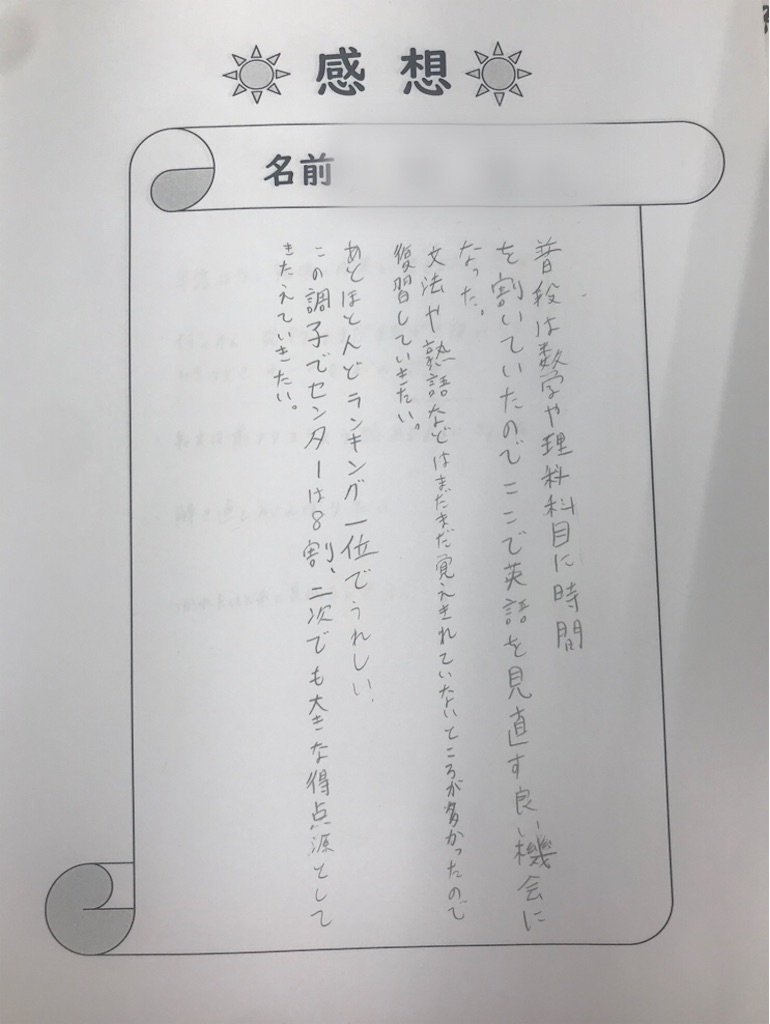 感想
名前
普段は数学や理科科目に時間
を割いていたのでここで英語を見直す良い機会に
なった。
文法や熟語などはまだまだ覚えきれていないところが多かったので
復習していきたい。
あとほとんどランキング一位でうれしい。
この調子でセンターは8割、二次でも大きな得点源として
きたえていきたい。